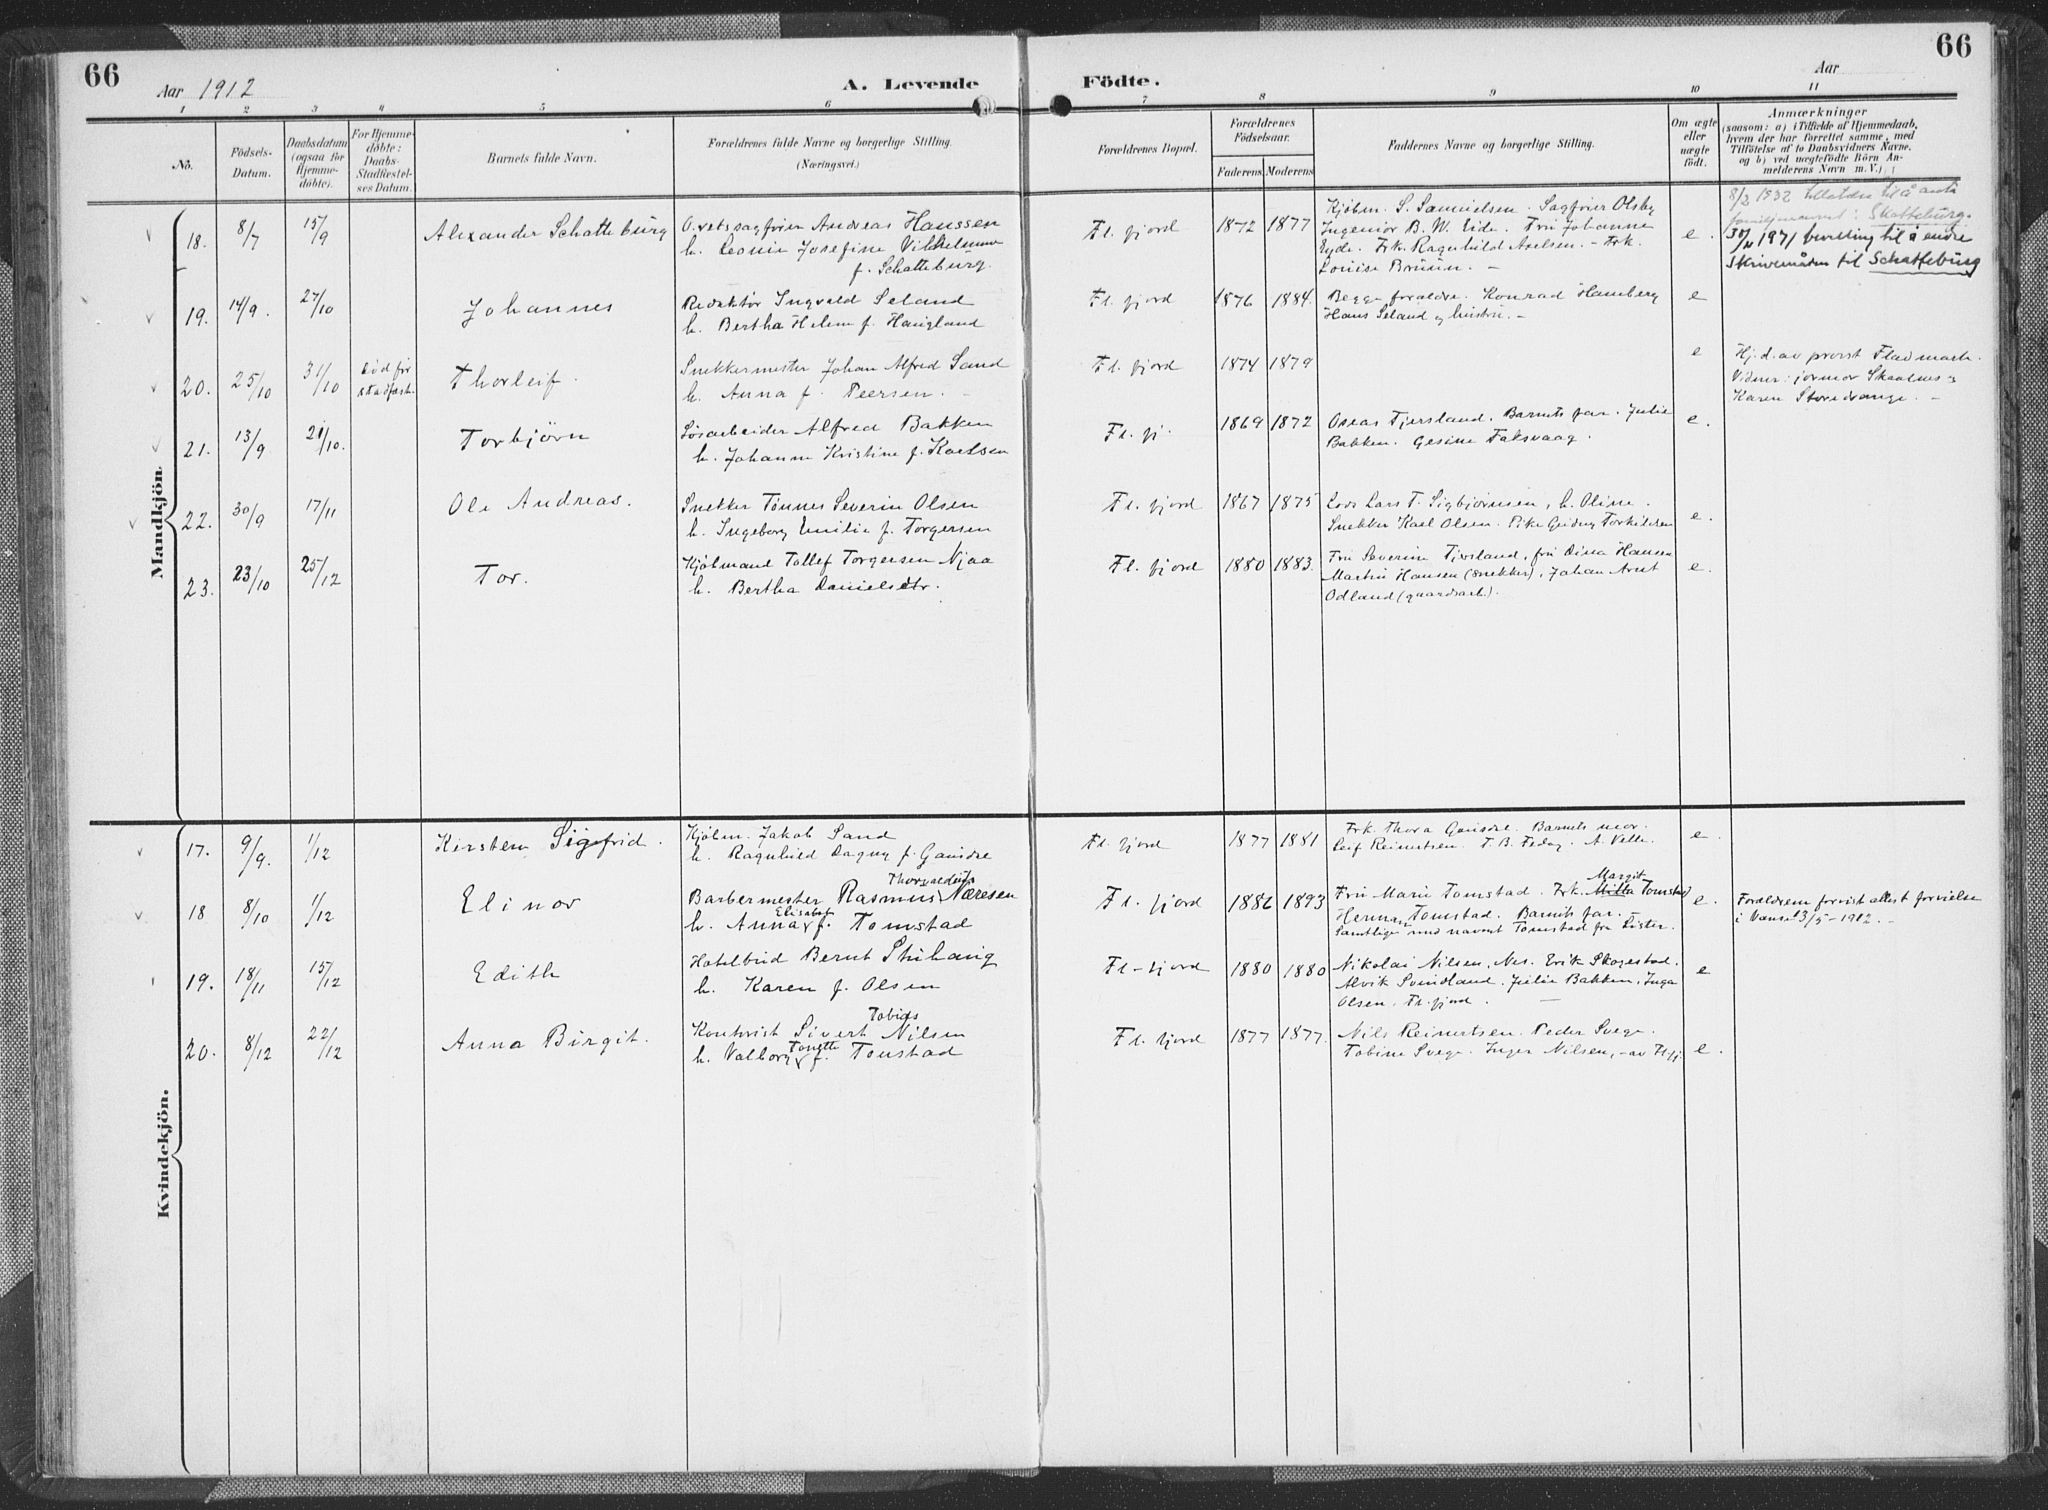 66
Aar 1912
A. Levende Födte.
Aar
66
1 2 3 4 5 6 7 8 9 10 11
No.
Födsels-
Datum.
Daabsdatum
(ogsaa for
Hjemme-
døbte).
For Hjemme-
døbte:
Daabs-
Stadfæstel-
ses Datum.
Barnets fulde Navn.
Forældrenes fulde Navne og borgerlige Stilling.
(Næringsvei.)
Forældrenes Bopæl.
Forældrenes
Födselsaar.
Faderens. Moderens.
Faddernes Navne og borgerlige Stilling.
Om ægte
eller
uægte
født.
Anmærkninger
(saasom: a) i Tilfælde af Hjemmedaab,
hvem der har forrettet samme, med
Tilföielse af to Daabsvidners Navne.
og b) ved uægtefödte Börn An-
melderens Navn m. V.)
Mandkjön.
18. 8/7 15/9 Alexander Schatteburg
O.retssagfører Andreas Hanssen
h. Leonie Josefine Vilhelmine
f. Schatteburg.
Fl. fjord 1872 1877
Kjøbm. S. Samuelsen. Sagfører Olsby
Ingeniør B. W. Eide. Fru Johanne
Eyde. Frk. Ragnhild Axelsen. - Frk.
Louise Bruun. -
e.
8/2 1932 tillatelse til å anta
familienavnet: Skatteburg.
1971 bevilling til å endre
skrivemåten til Schatteburg
19. 14/9. 27/10 Johannes
Redaktør Ingvald Seland
h. Bertha Helene f. Haugland
Fl. fjord 1876 1884.
Begge forældre. Konrad Hamberg
Hans Seland og hustru. -
e
20. 25/10 31/10 død før
stadfæst. Thorleif.
Snekkermester Johan Alfred Sand
h. Anna f. Peersen. -
Fl. fjord 1874 1879
e
Hj.d. av provst Flødmark.
Vidner: jormor Skaalnes og
Karen Storedvange. -
21. 13/9 21/10. Torbjörn
Løsarbeider Alfred Bakken
h. Johanne Kristine f. Karlsen
Fl. fj. 1869 1872
Oseas Tjersland. Barnets far. Julie
Bakken. Gesine Faksvaag.
e.
22. 30/9 17/11 Ole Andreas.
Snekker Tönnes Severin Olsen
h. Ingeborg Emilie f. Torgersen
Fl. fjord 1867 1875
Lods Lars T. Sigbjørnsen, h. Oline.
Snekker Karl Olsen. Pike Gudny Torkildsen
e.
23. 23/10 25/12 Tor.
Kjøbmand Tollef Torgersen Njaa
h. Bertha Danielsdtr.
Fl. fjord 1880 1883.
Fru Severine Tjersland, fru Dina Hansen
Martin Hansen (snekker), Johan Aret
Odland (gaardsarb.).
e.
Kvindekjön.
17. 9/9. 1/12 Kirsten Sigfrid.
Kjøbm. Jakob Sand
h. Ragnhild Dagny f. Gausdre
Fl. fjord 1877 1881
Frk. Thora Gausdre. Barnets mor.
Leif Reinertsen. T. B. Fedog. A. Velle.
e.
18 8/10 1/12 Elinor
Thorvaldsen
Barbermester Rasmus Næresen
Elisabet
h. Anna f. Tomstad
Fl. fjord 1886 1893
Margit
Fru Marie Tomstad. Frk. Milla Tomstad
Herman Tomstad. Barnets far.
Samtlige med navnet Tomstad fra Lister.
e.
Forældrene forevist attest for vielse
i Vanse 3/5-1912. -
19. 18/11 15/12 Edith
Hotelbud Bernt Stuhaug
h. Karen f. Olsen
Fl-fjord 1880 1880
Nikolai Nilsen, Nes. Erik Skogestad.
Alvik Svindland. Julie Bakken. Inga
Olsen. Fl. fjord. -
e
20. 8/12 22/12 Anna Birgit.
Tobias
Kontorist Sivert Nilsen
Tonette
h. Valborg f. Tonstad
Fl. fjord 1877 1877.
Nils Reinertsen. Peder Svege.
Tobine Svege. Inger Nilsen, - av Flfj.
e.